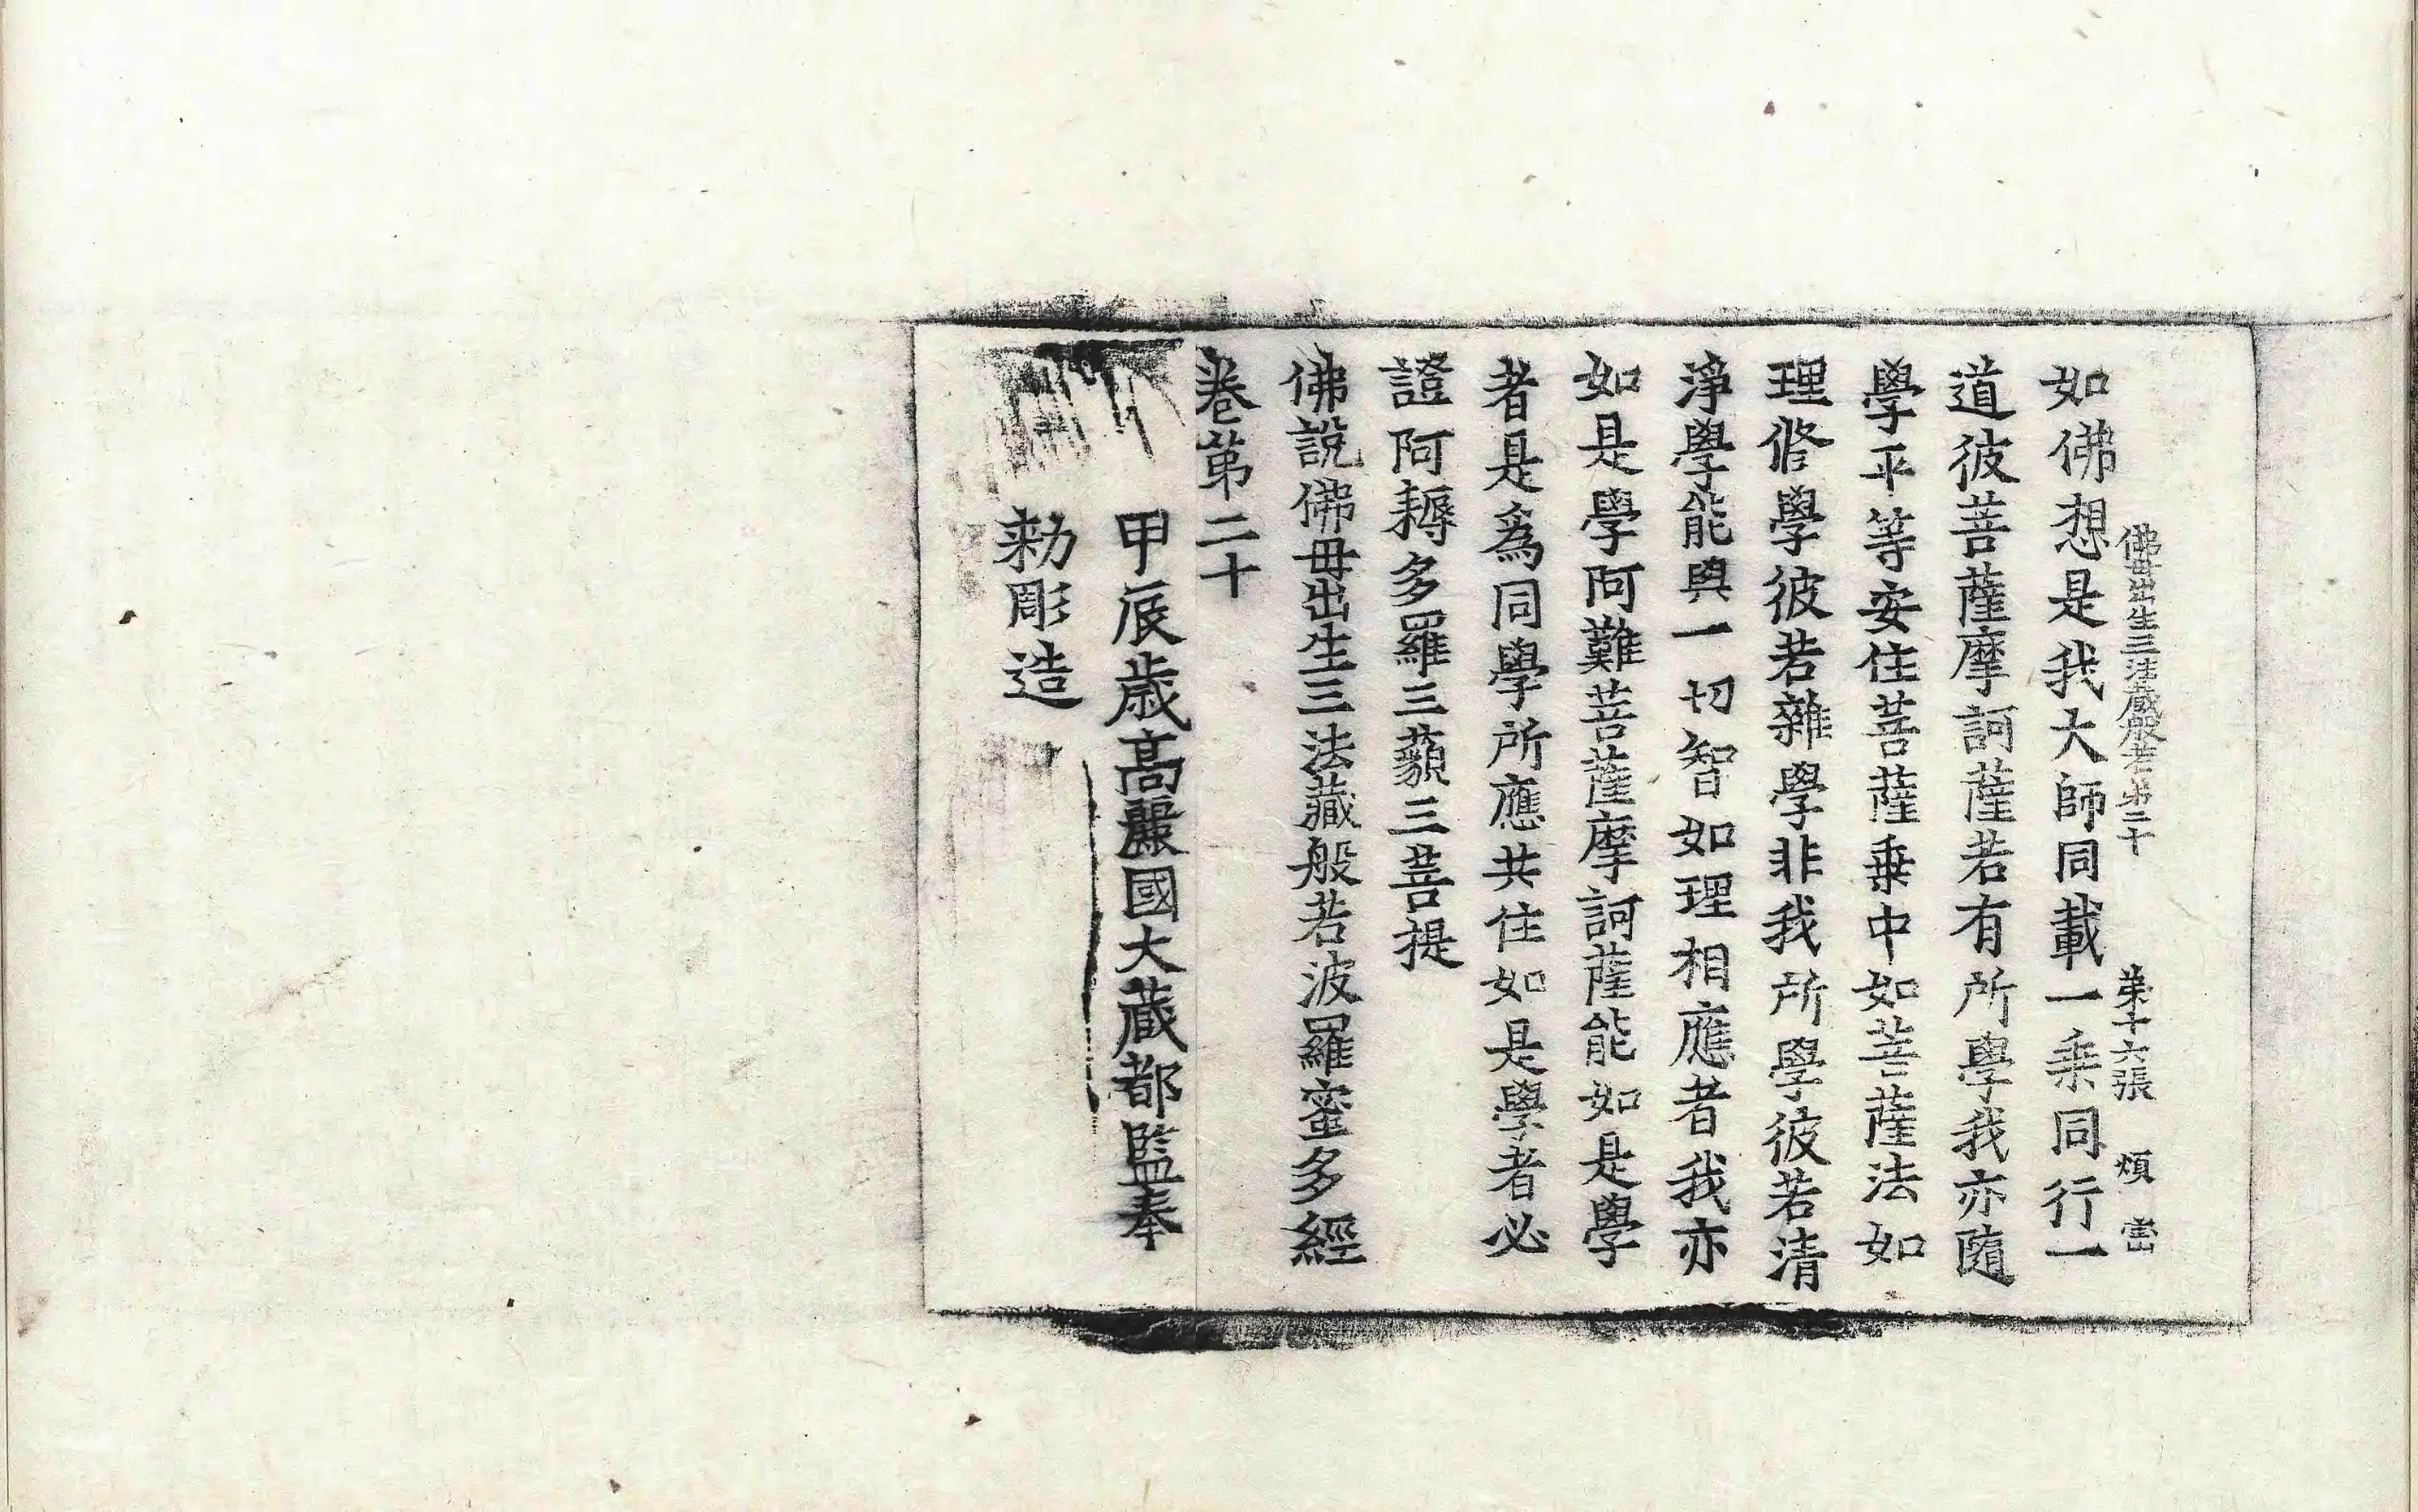 佛母出生三法蔵般若第二十 第十六張 煩
如佛想是我大師同載一乗同行一
道彼菩薩摩訶薩若有所學我亦隨
學平等安住菩薩乗中如菩薩法如
理修學彼若雜學非我所學彼若清
淨學能與一切智如理相應者我亦
如是學阿難菩薩摩訶薩能如是學
者是爲同學所應共住如是學者必
證阿耨多羅三藐三菩提
佛說佛毋出生三法藏般若波羅蜜多經
卷第二十
甲辰歳高麗國大蔵都監奉
勑彫造